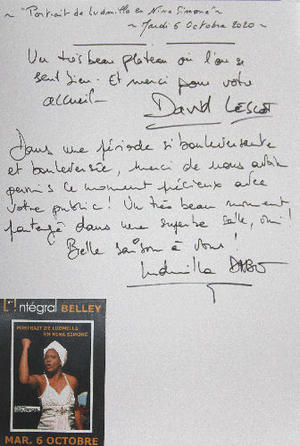 ~ "Portrait de Ludmilla en Nina Simone" ~
~ Mardi 6 Octobre 2020 ~
Un très beau plateau où l'on se
sent bien. Et merci pour votre
accueil.
David Lescot
Dans une période si bouleversante
et bouleversée, merci de nous avoir
permis ce moment précieux avec
votre public ! Un très beau moment
partagé dans une superbe salle, oui !
Belle saison à vous !
Ludmilla DABO
L'intégral BELLEY
PORTRAIT DE LUDMILLA
EN NINA SIMONE
MAR. 6 OCTOBRE